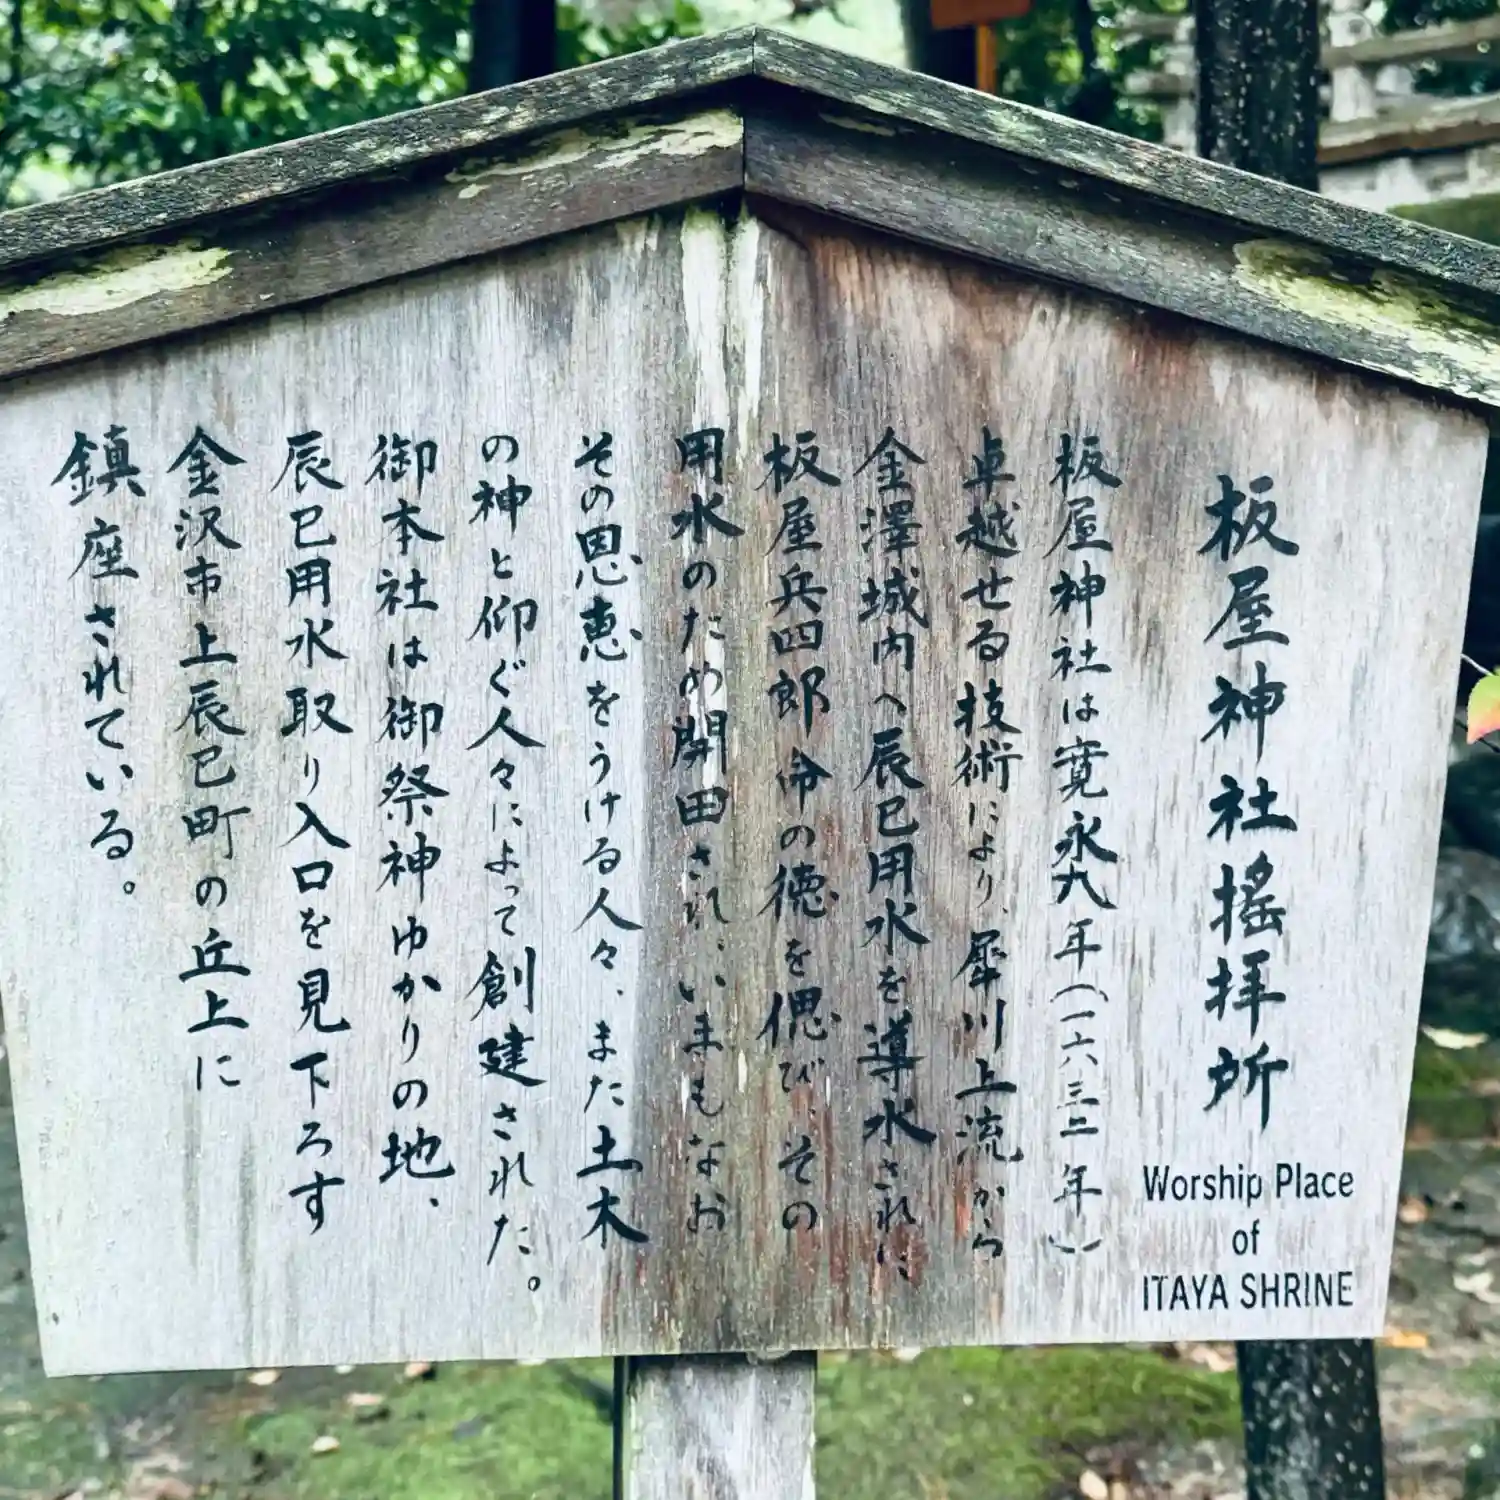 板屋神社搖拝所
Worship Place
of
ITAYA SHRINE
板屋神社は寛永九年(一六三二年)
卓越せる技術により、犀川上流から
金澤城内へ辰巳用水を導水されに
板屋兵四郎命の徳を偲び、その
用水のため開田され、いまもなお
その恩恵をうける人々、また土木
の神と仰ぐ人々によって創建された。
御本社は御祭神ゆかりの地、
辰巳用水取り入口を見下ろす
金沢市上辰巳町の丘上に
鎮座されている。